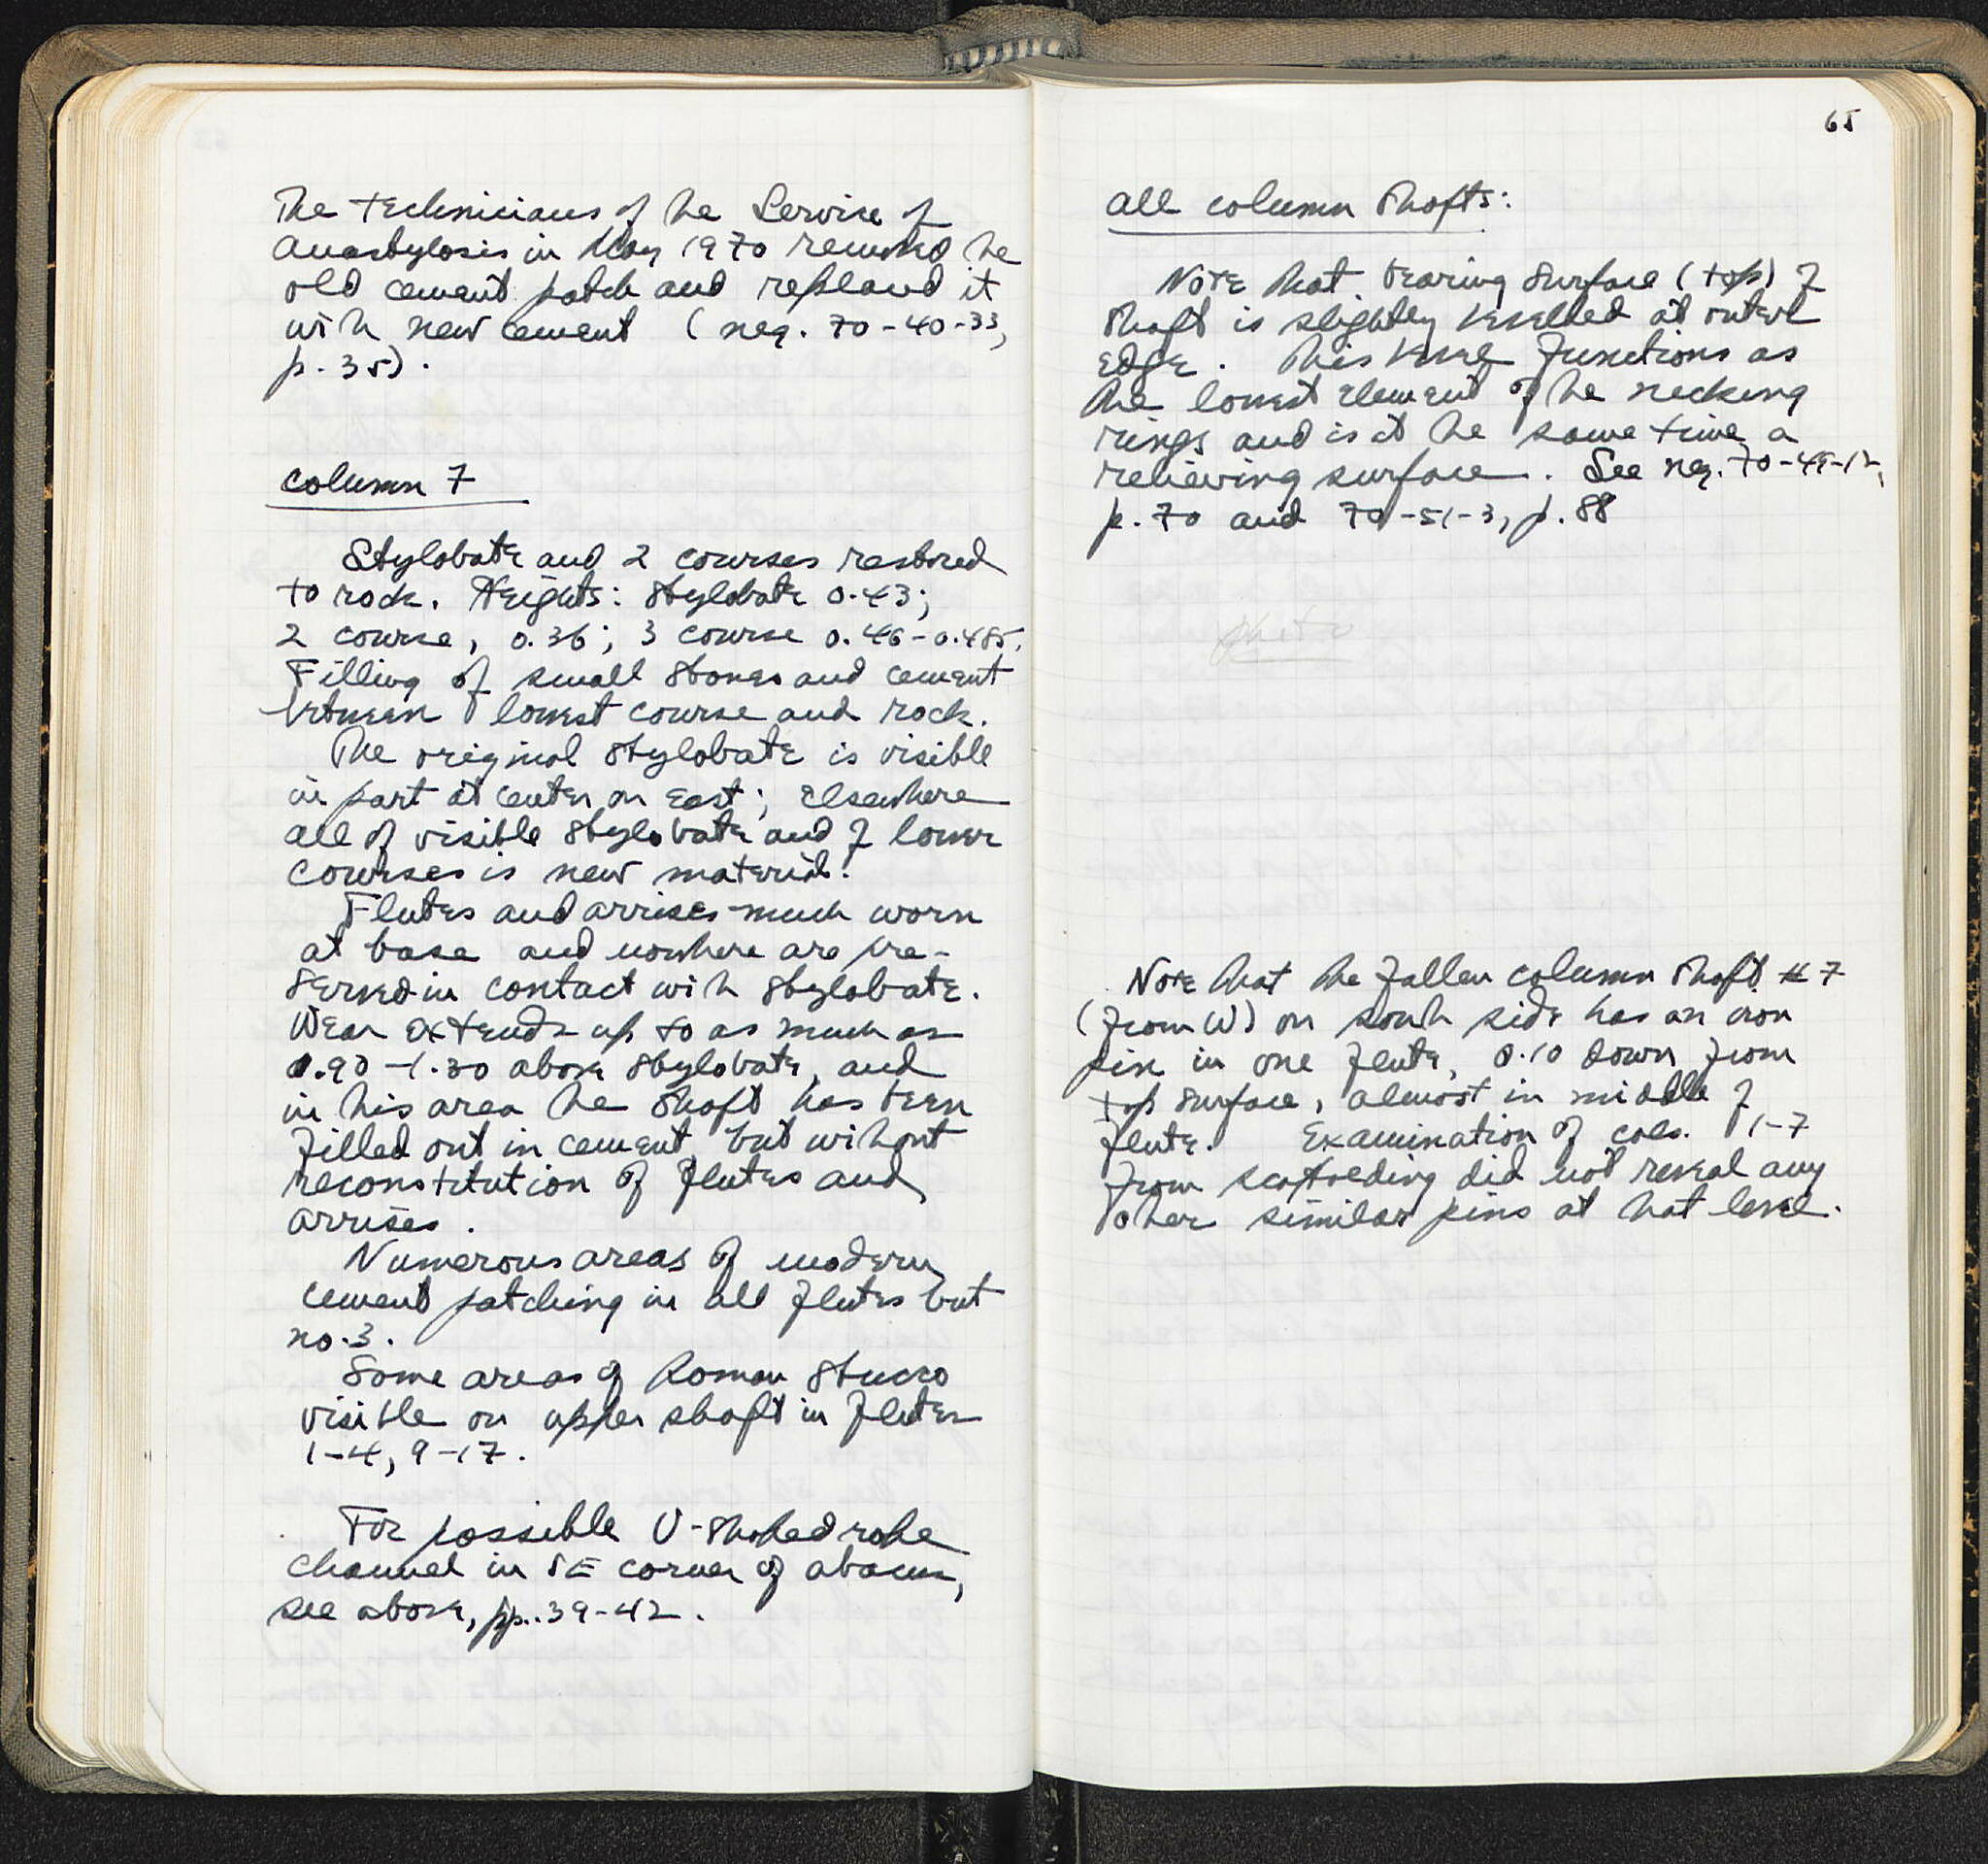 The technicians of the Service of
Anastylosis in May 1970 removed the
old cement patch and replaced it
with new cement (neg. 70-40-33,
p. 35).
Column 7
Stylobate and 2 courses restored
to rock. Heights: stylobate 0.43;
2 course, 0.36; 3 course 0.46-0.485.
Filling of small stones and cement
between lowest course and rock.
The original stylobate is visible
in part at center on east; elsewhere
all of visible stylobate and of lower
courses is new material.
Flutes and arrises much worn
at base and nowhere are pre-
served in contact with stylobate.
Wear extends up to as much as
0.90-1.30 above stylobate, and
in this area the shaft has been
filled out in cement, but without
reconstitution of flutes and
arrises.
Numerous areas of modern
cement patching in all flutes but
no. 3.
Some areas of Roman stucco
visible on upper shaft in flutes
1-4, 9-17.
For possible U-shaped rope
channel in SE corner of abacus,
see above, pp. 39-42.
65
All column shafts:
Note that bearing surface (top) of
shaft is slightly bevelled at outer
edge. This bevel functions as
the lowest element of the necking
rings and is at the same time a
relieving surface. See neg. 70-49-12,
p. 70 and 70-51-3, p. 88
photo
Note that the fallen column shaft #7
(from W) on south side has an iron
pin in one flute, 0.10 down from
top surface, almost in middle of
flute. Examination of cols. 1-7
from scaffolding did not reveal any
other similar pins at that level.